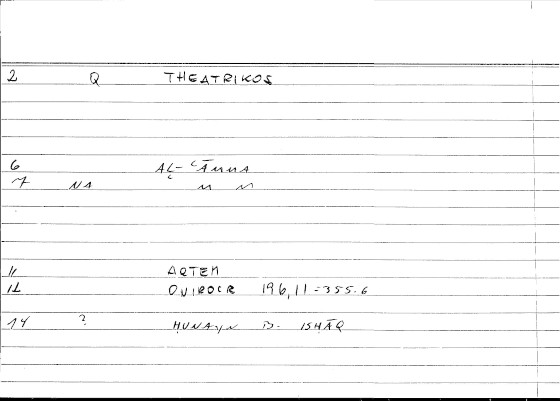 2 Q THEATRIKOS
6 AL- ʿĀMMA
7 NA " "
11 ARTEM
12 ONIROCR 196,11-355.6
14 ? ḤUNAYN B. ISḤĀQ